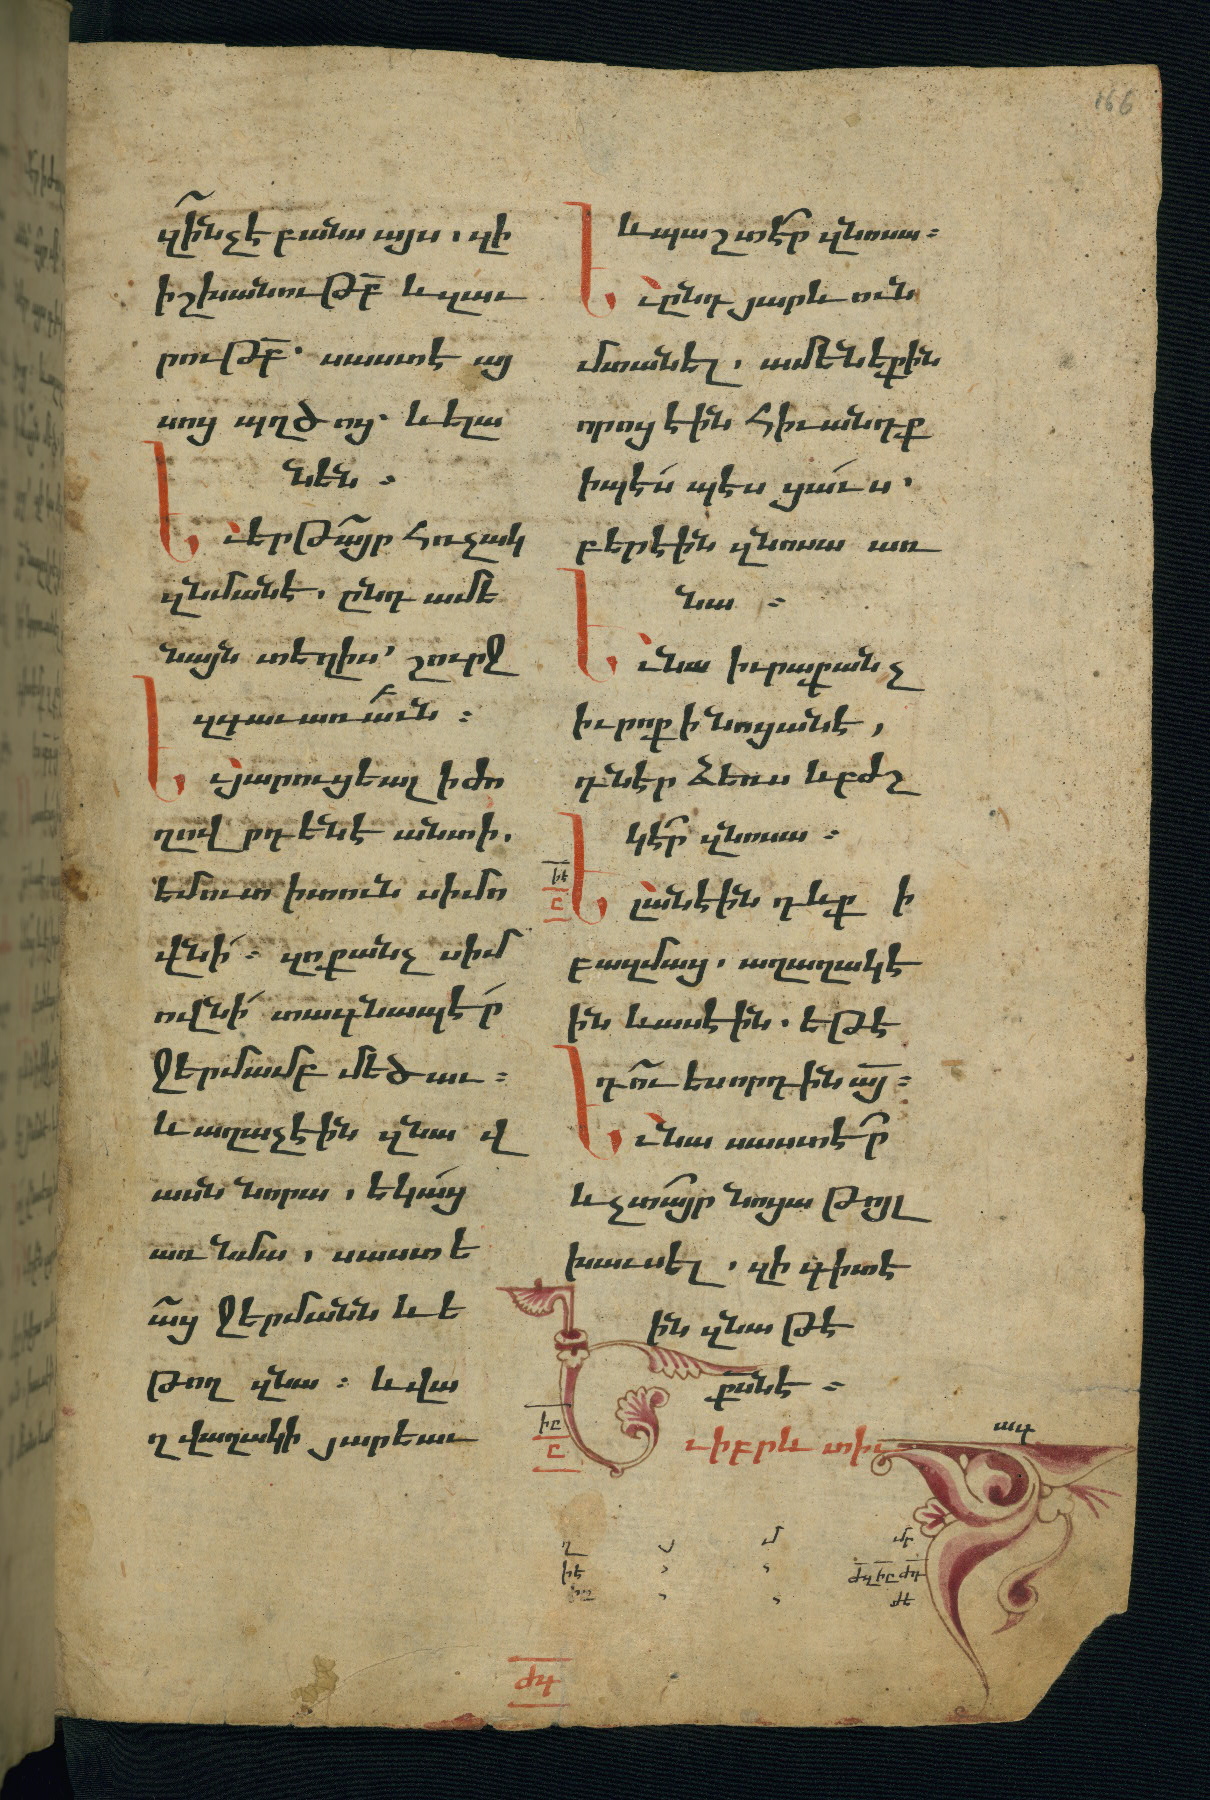 զի՞նչ է բանս այս, զի
իշխանութբ̅ և զաւ
րութբ̅. սաստէ այ
սոց պղծոց. և ելա
նեն։
Եւ երթայր հռչակ
զնմանէ, ընդ ամե
նայն տեղիս՝ շուրջ
զգաւառաւբն։
Եւ յարուցեալ ի ժո
ղովրդենէ անտի,
եմուտ ի տուն սիմո
վնի։ զոքանչ սիմ
ովնի տագնապէր
ջերմամբ մեծաւ։
և աղաչէին զնա վ
ասն նորա, եկաց
առ նմա, սաստե
աց ջերմանն և ե
թող զնա։ և վա
ղվաղակի յարեաւ
և պաշտէր զնոսա։
Եւ ընդ յարև ուն
մտանել, ամենեքին
որոց էին հիւանդք
ի պէս պէս ցաւս,
բերէին զնոսա առ
նա։
Եւ նա իւրաքանչ
իւրոք ի նոցանէ,
դնէր ձեռս և բժշ
կէր զնոսա։
իէ
ը
Ելանէին դևք ի
բազմաց, աղաղակէ
ին և ասէին, եթէ
դու ես որդին այ̅։
Եւ նա սաստէր
և չտայր նոցա թոյլ
խաւսել, զի գիտէ
ին զնա թէ
քսն է։
իը
ը
Եւ իբրև տիւ
ժդ
166